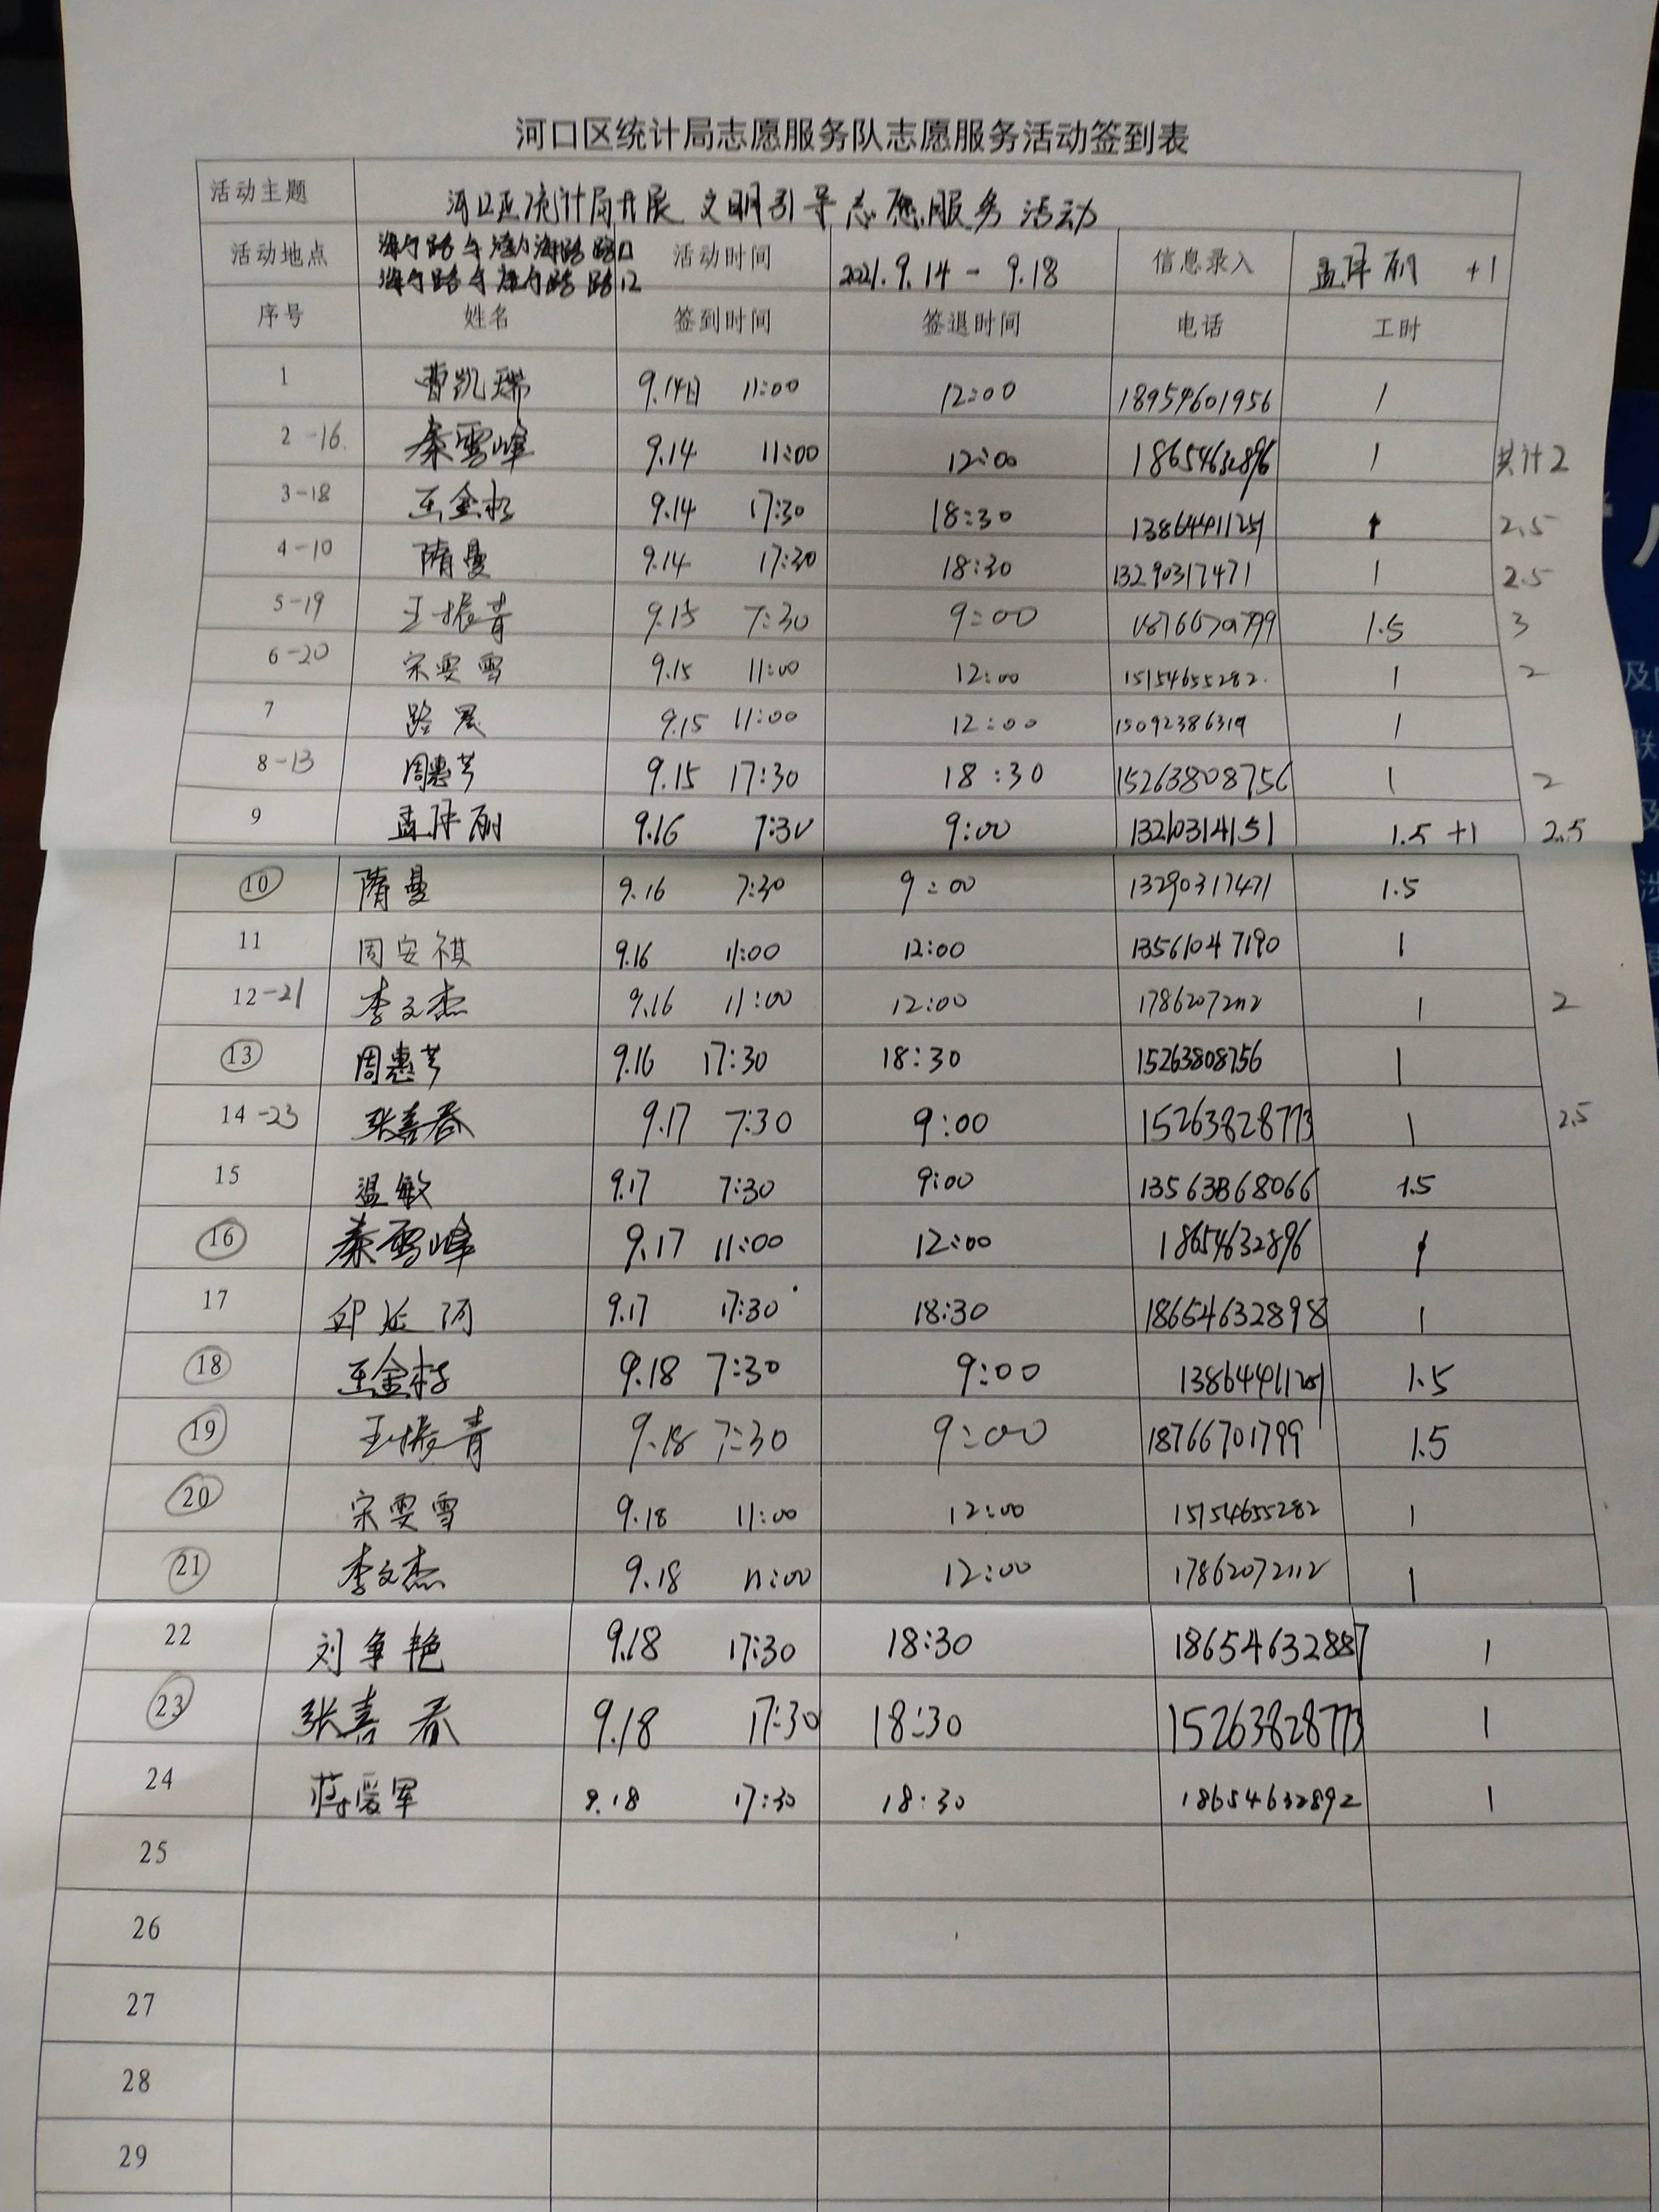 河口区统计局志愿服务队志愿服务活动签到表
活动主题 河口区统计局开展文明引导志愿服务活动
活动地点 海宁路与渤海路路口 活动时间 2021.9.14-9.18 信息录入 孟泽丽 +1
海宁路与 路路口
序号 姓名 签到时间 签退时间 电话 工时
1 曹凯瑞 9.14日 11:00 12:00 18954601956 1
2-16 秦雪峰 9.14 11:00 12:00 18654632896 1 共计2
3-18 王金 9.14 17:30 18:30 1 2.5
4-10 隋曼 9.14 17:30 18:30 13290317471 1 2.5
5-19 王振青 9.15 7:30 9:00 18766701799 1.5 3
6-20 宋雯雪 9.15 11:00 12:00 15154655282 1 2
7 路 9.15 11:00 12:00 15092386319 1
8-13 周惠芳 9.15 17:30 18:30 15263808756 1 2
9 孟泽丽 9.16 7:30 9:00 13210314151 1.5 +1 2.5
10 隋曼 9.16 7:30 9:00 13290317471 1.5
11 周安祺 9.16 11:00 12:00 13561047190 1
12-21 李文杰 9.16 11:00 12:00 17862072112 1 2
13 周惠芳 9.16 17:30 18:30 15263808756 1
14-23 张喜春 9.17 7:30 9:00 15263828773 1 2.5
15 温敏 9.17 7:30 9:00 13563868066 1.5
16 秦雪峰 9.17 11:00 12:00 18654632896 1
17 邱延 9.17 17:30 18:30 18654632898 1
18 王金 9.18 7:30 9:00 1.5
19 王振青 9.18 7:30 9:00 18766701799 1.5
20 宋雯雪 9.18 11:00 12:00 15154655282 1
21 李文杰 9.18 11:00 12:00 17862072112 1
22 刘争艳 9.18 17:30 18:30 18654632887 1
23 张喜春 9.18 17:30 18:30 15263828773 1
24 蒋爱军 9.18 17:30 18:30 18654632892 1
25
26
27
28
29